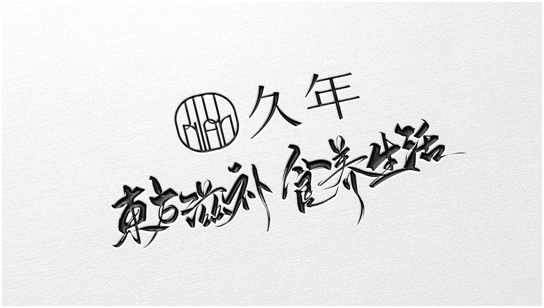 久年
東方滋补 宜养生活